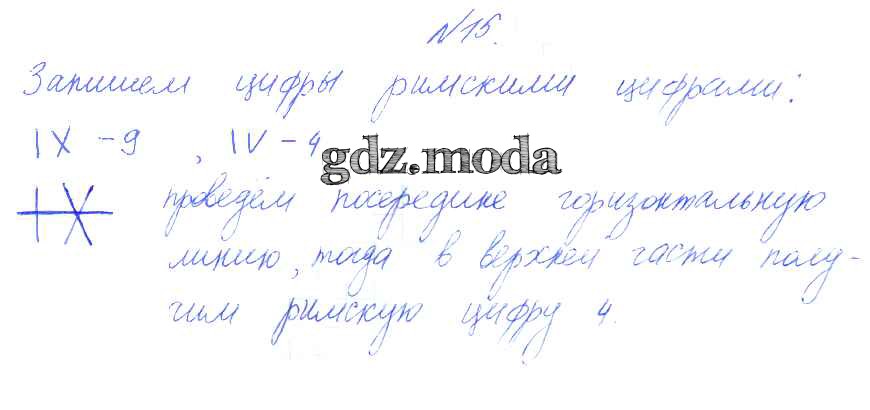 №15.
Запишем цифры римскими цифрами:
IX – 9 , IV – 4
gdz.moda
IX проведём посередине горизонтальную
линию, тогда в верхней части полу-
чим римскую цифру 4.